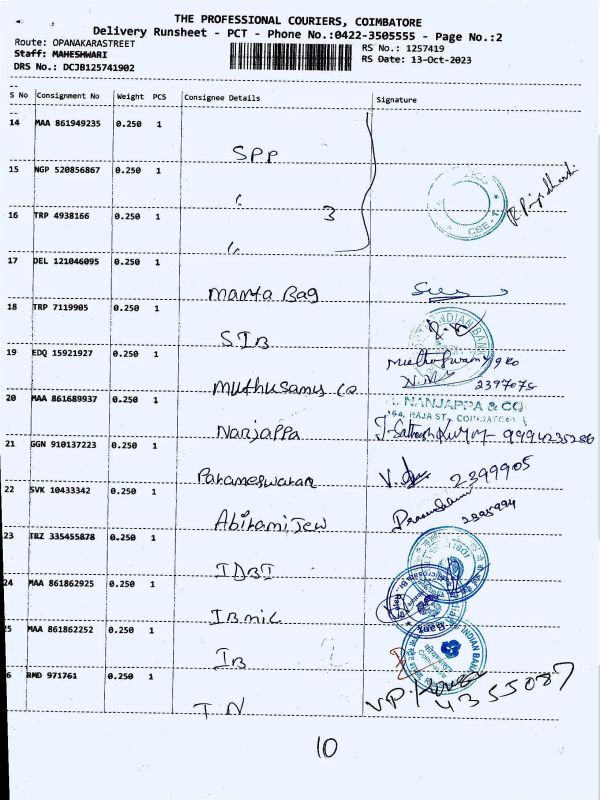 THE PROFESSIONAL COURIERS, COIMBATORE
Delivery Runsheet - PCT - Phone No.:0422-3505555 - Page No.:2
Route: OPANAKARASTREET
RS No.: 1257419
Staff: MAHESHWARI
RS Date: 13-Oct-2023
DRS No.: DCJB125741902
S No Consignment No Weight PCS Consignee Details Signature
14 MAA 861949235 0.250 1
SPP
15 NGP 520856867 0.250 1
16 TRP 4938166 0.250 1
3
CBE
17 DEL 121046095 0.250 1
Mamta Bag
18 TRP 7119905 0.250 1
SIB
INDIAN BANK
19 EDQ 15921927 0.250 1
Muthusamy Co
Muthuswamy &co
2397075
20 MAA 861689937 0.250 1
Nanjappa
NANJAPPA & CO
RAJA ST, COIMBATORE
J-Sathesh Kumar- 9994235286
21 GGN 910137223 0.250 1
Parameswaran
2399905
22 SVK 10433342 0.250 1
Abirami Jew
2395994
23 TRZ 335455878 0.250 1
IDBI
24 MAA 861862925 0.250 1
IB mic
25 MAA 861862252 0.250 1
IB
INDIAN BANK
6 RMD 971761 0.250 1
TN
4355087
10